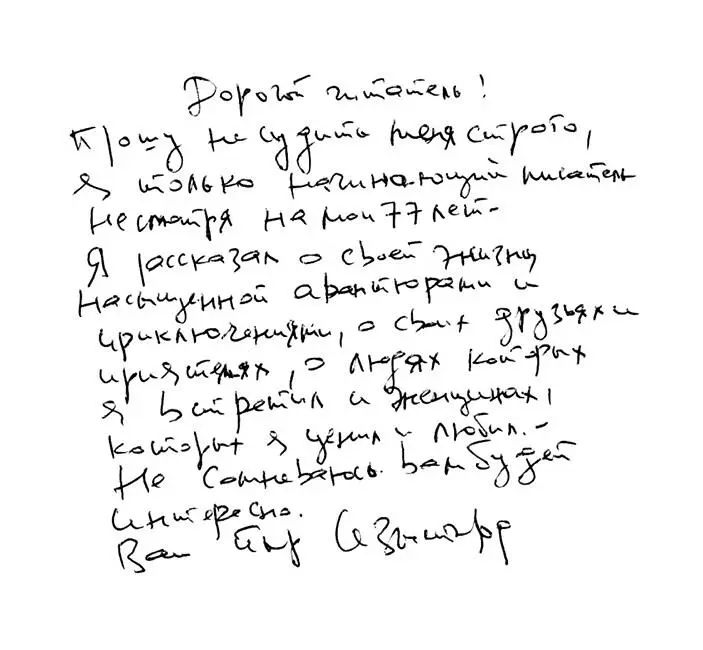 Дорогой читатель!
Прошу не судить меня строго,
я только начинающий писатель
несмотря на мои 77 лет.-
Я рассказал о своей жизни
насыщенной авантюрами и
приключениями, о своих друзьях и
приятелях, о людях которых
я встретил и женщинах,
которых я ценил и любил.-
Не сомневаюсь вам будет
интересно.
Ваш